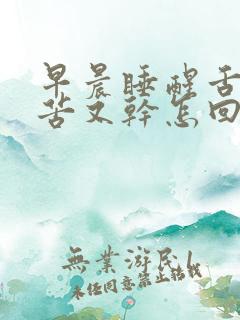 早晨睡醒舌
苦又幹怎回
無業游民l
未经同意禁止转载